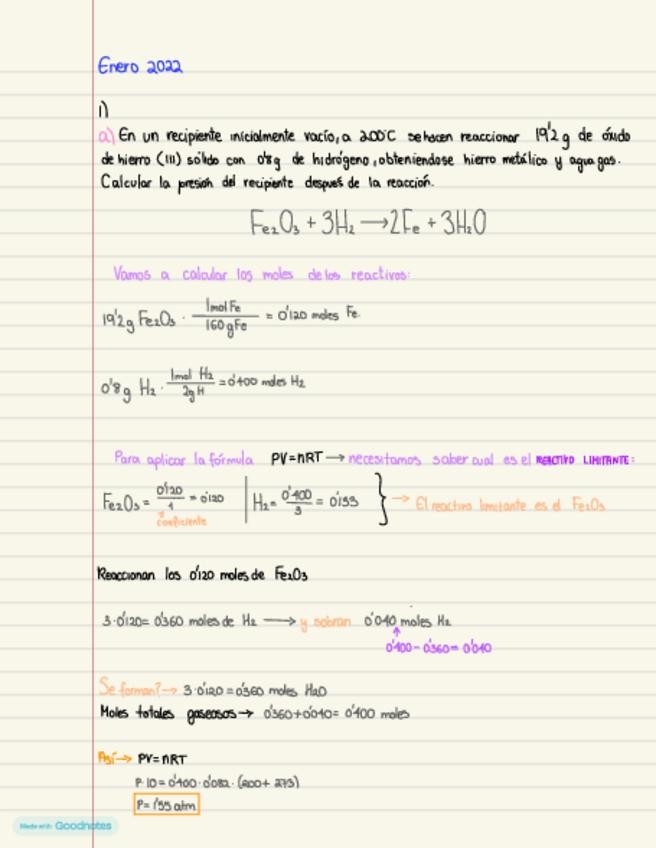 Enero 2022
1)
a) En un recipiente inicialmente vacío, a 200°C se hacen reaccionar 19'2 g de óxido
de hierro (III) sólido con 0'8g de hidrógeno, obteniendose hierro metálico y agua gas.
Calcular la presión del recipiente después de la reacción.
Fe₂O₃ + 3H₂ → 2Fe + 3H₂O
Vamos a calcular los moles de los reactivos:
19'2g Fe₂O₃ · 1mol Fe / 160 g Fe = 0'120 moles Fe.
0'8g H₂ · 1mol H₂ / 2g H = 0'400 moles H₂
Para aplicar la fórmula PV=nRT → necesitamos saber cual es el REACTIVO LIMITANTE:
Fe₂O₃ = 0'120 / 1 = 0'120 | H₂ = 0'400 / 3 = 0'133 } → El reactivo limitante es el Fe₂O₃
coeficiente
Reaccionan los 0'120 moles de Fe₂O₃
3·0'120 = 0'360 moles de H₂ → y sobran 0'040 moles H₂
0'400 - 0'360 = 0'040
Se forman? → 3·0'120 = 0'360 moles H₂O
Moles totales gaseosos → 0'360 + 0'040 = 0'400 moles
Así → PV = nRT
P·10 = 0'400 · 0'082 · (200 + 273)
P = 1'55 atm
Made with Goodnotes